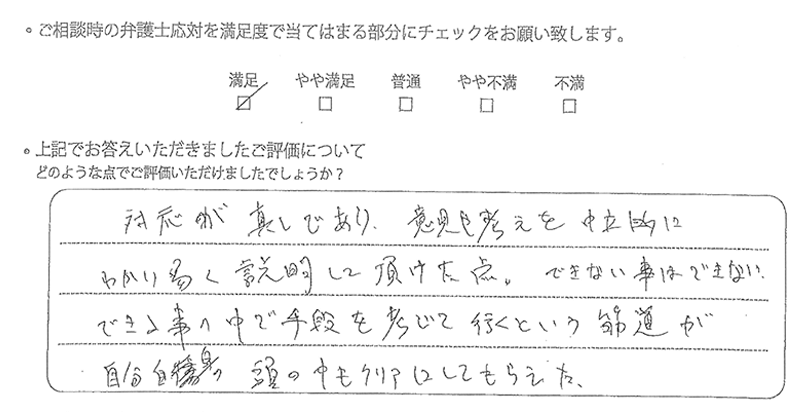 • ご相談時の弁護士応対を満足度で当てはまる部分にチェックをお願い致します。
満足 やや満足 普通 やや不満 不満
☑ □ □ □ □
• 上記でお答えいただきましたご評価について
どのような点でご評価いただけましたでしょうか？
対応が真しであり、意見も考えを中立的に
わかり易く説明して頂けた点。できない事はできない、
できる事の中で手段を考じて行くという筋道が
自分自身の頭の中もクリアにしてもらえた。